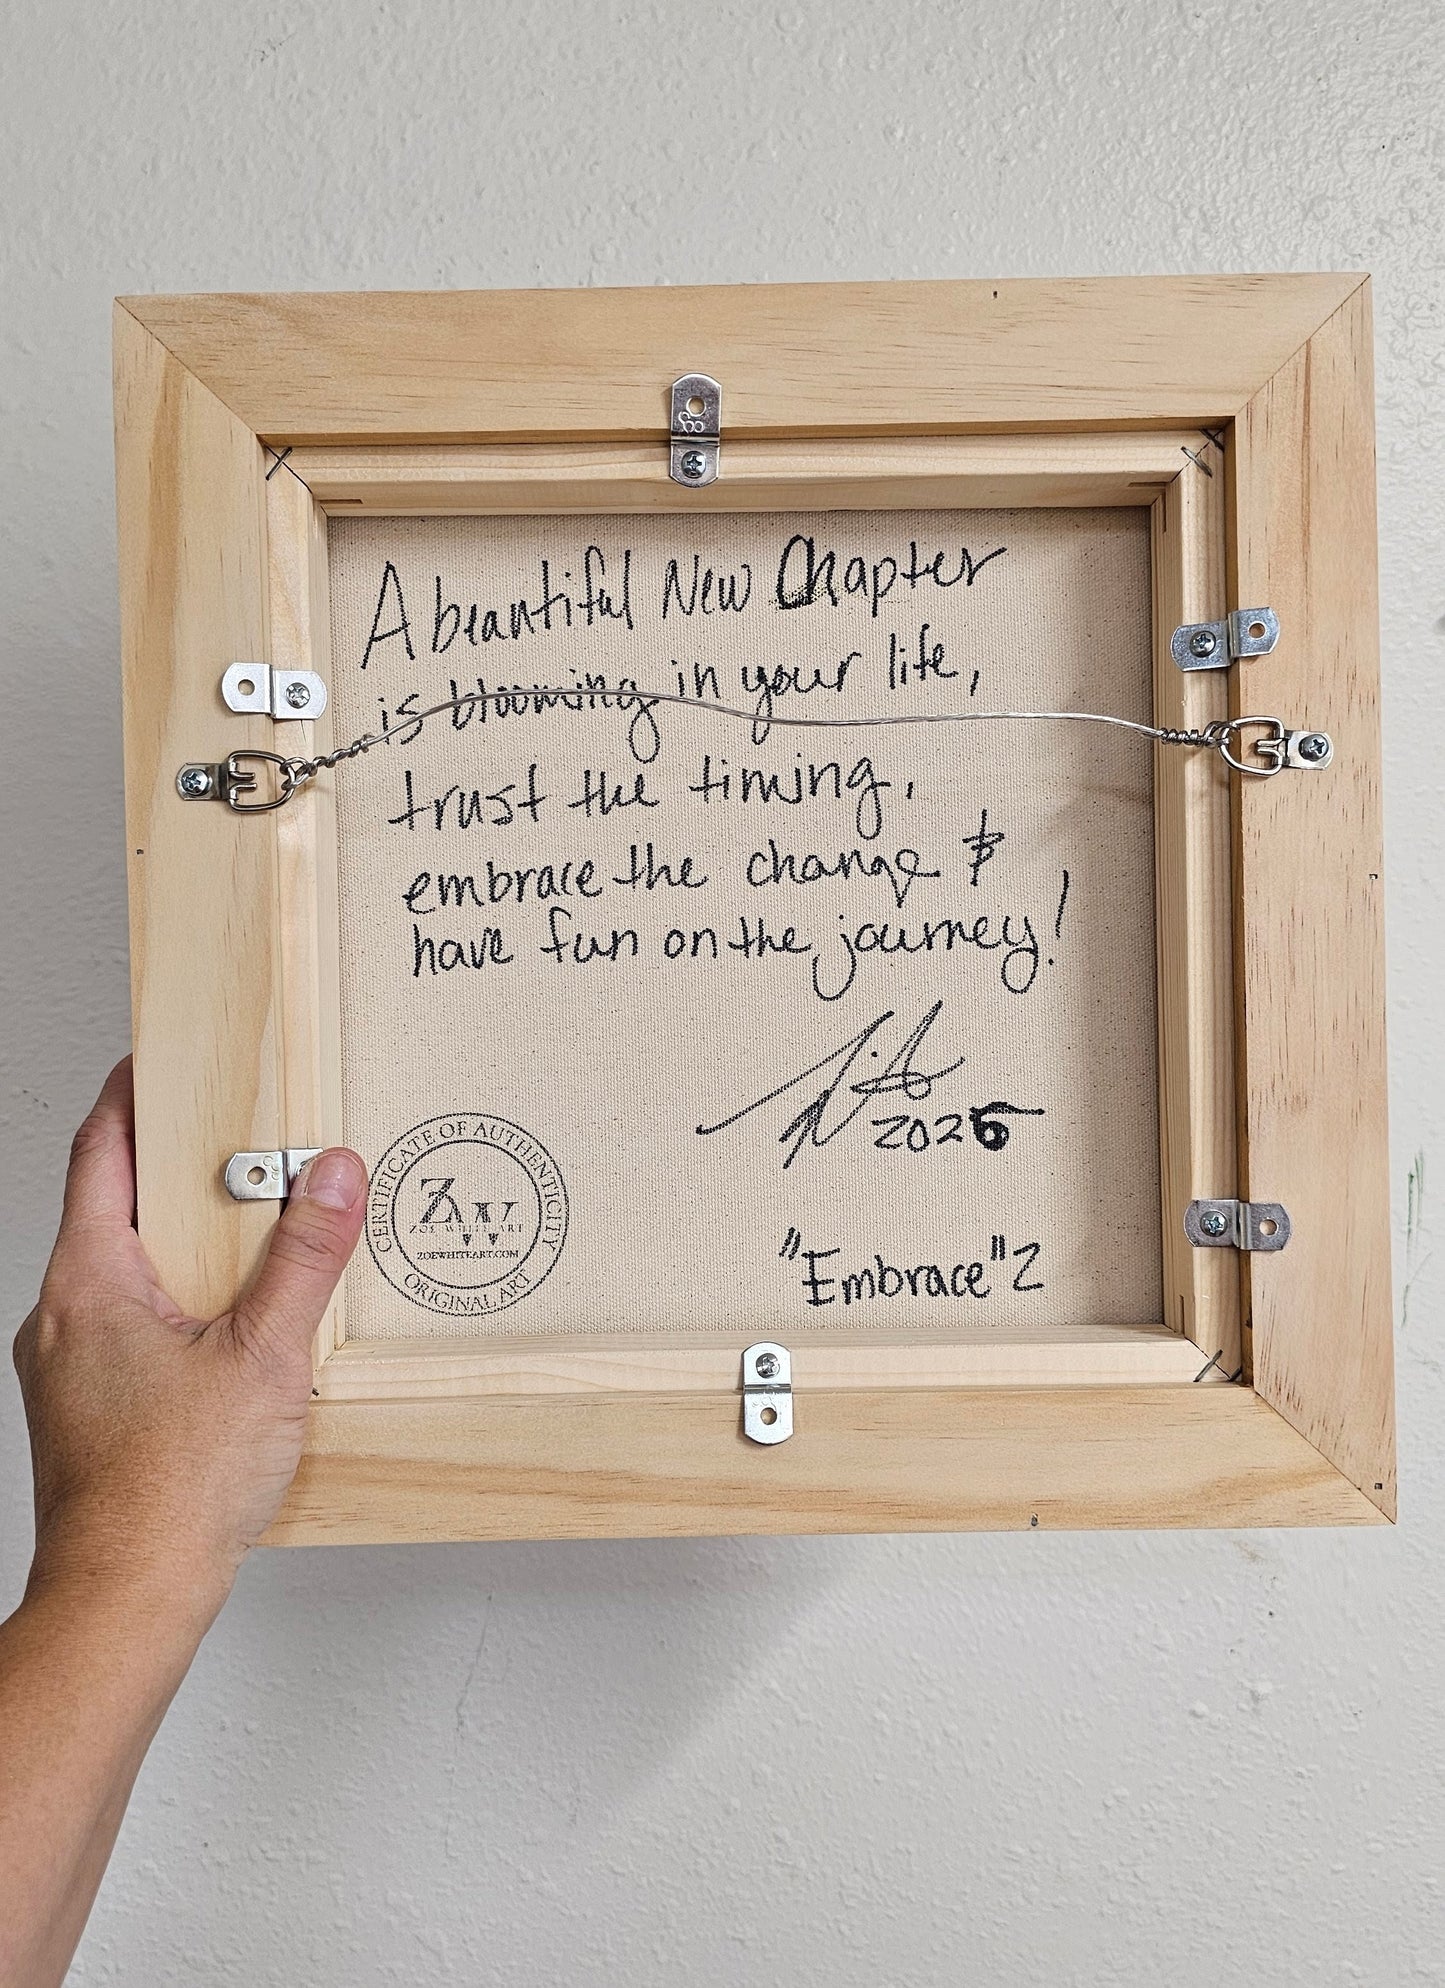 A beautiful New Chapter
is blooming in your life,
trust the timing,
embrace the change &
have fun on the journey!
2025
CERTIFICATE OF AUTHENTICITY
ZW
ZOE WHITE ART
ZOEWHITEART.COM
ORIGINAL ART
"Embrace" 2